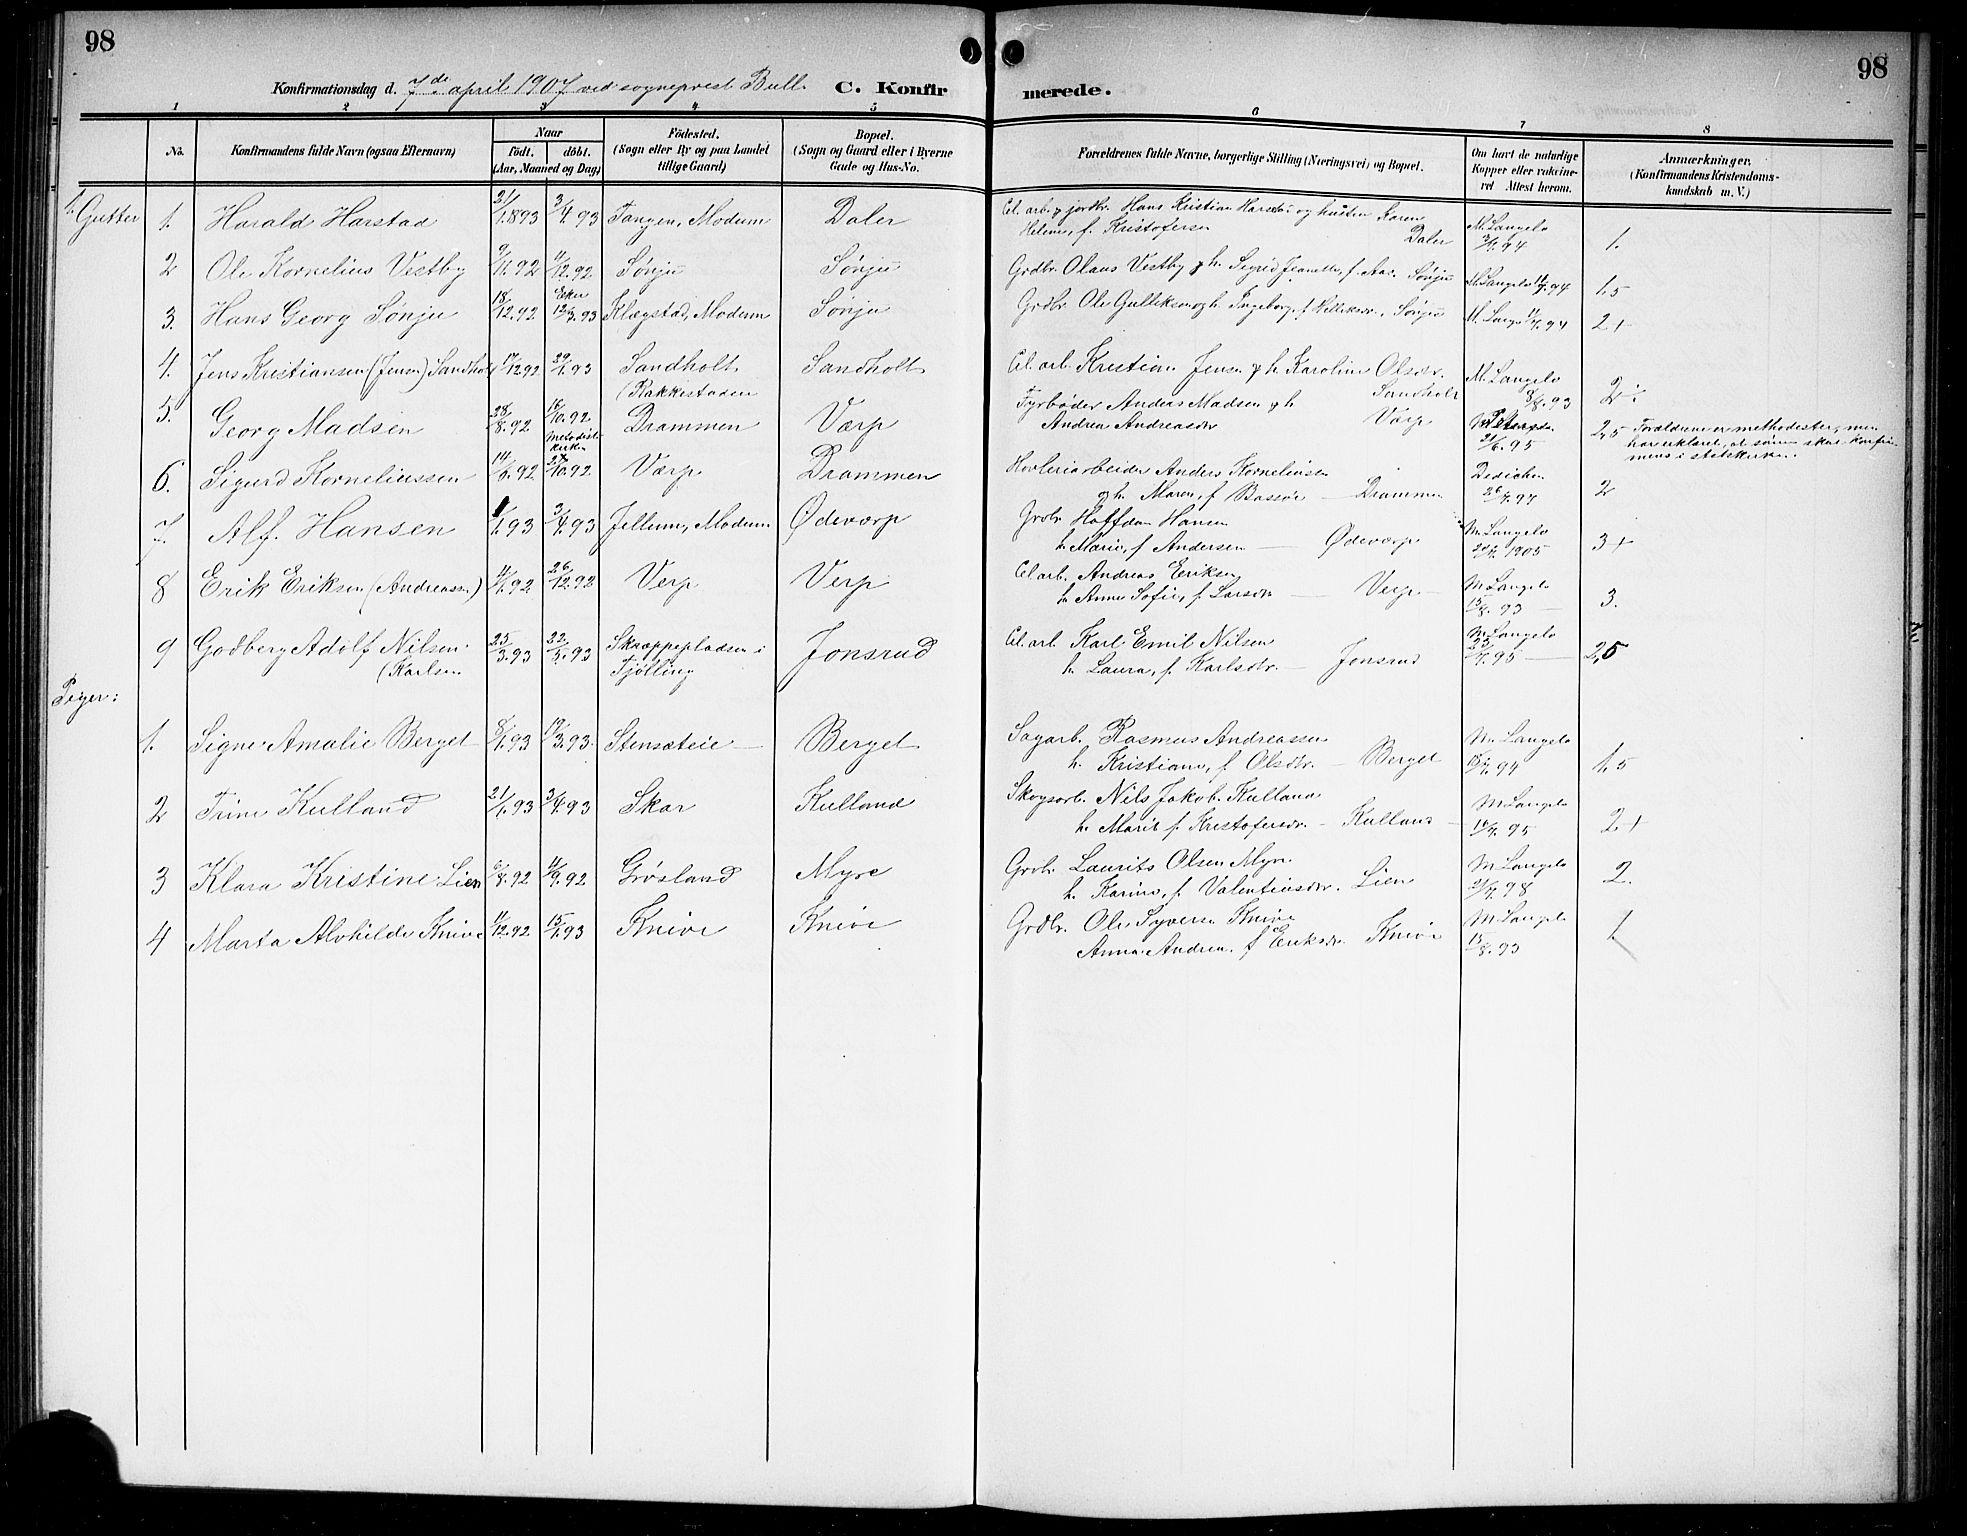 98
98
Konfirmationsdag d. 7de april 1907 ved sogneprest Bull. C. Konfir merede.
1 2 3 4 5 6 7 8
No. Konfirmandens fulde Navn (ogsaa Efternavn) Naar født. døbt. (Aar, Maaned og Dag) Födested. (Sogn eller By og paa Landet tillige Gaard) Bopæl. (Sogn og Gaard eller i Byerne Gade og Hus-No. Forældrenes fulde Navne, borgerlige Stilling (Næringsvei) og Bopæl. Om havt de naturlige Kopper eller vakcineret Attest herom. Anmærkninger. (Konfirmandens Kristendomskundskab m. V.)
Gutter 1. Harald Harstad 21/1.1893 3/4.93 Tangen, Modum Daler Cel. arb. & jordbr. Hans Kristian Harstad og hustru Karen
Helene, f. Kristofersen Daler M. Langelo 94 1.
2 Ole Kornelius Vestby 9/11.92 11/12.92 Sønju Sønju Grdbr. Olaus Vestby & h. Sigrid Jeanette, f. Aas. Sønju M. Langelo 94 1,5
3. Hans Georg Sønju 18/12.92 Eker 12/3.93 Klægstad, Modum Sønju Grdbr. Ole Gulliksen og h. Ingeborg f. Helliksdr., Sønju M. Lange 94 2+
4. Jens Kristiansen (Jensen) Sandholt 17/12.92 29/1.93 Sandholt Sandholt Cel. arb. Kristian Jensen & h. Karoline Olsdtr. Sandholt M. Langelo 8/8.93 2÷
5. Georg Madsen 28/8.92 16/10.92 Metodistkirken (Rakkestaden Drammen Værp Fyrbøder Anders Madsen & h
Andrea Andreasdtr Værp 21/6.95 2,5 Forældrene er methodister, men
har erklæret, at sønnen skal konfirmeres i statskirken.
6. Sigurd Korneliussen 14/6.92 10.92 Værp Drammen Høvleriarbeider Anders Korneliusen
& h. Maren, f. Bassøe — Drammen Dedichen 97 2
7. Alf. Hansen 1/1.93 3/4.93 Jellum, Modum Ødeværp Grdbr Halfdan Hansen
h. Marie, f. Andersen — Ødeværp M. Langelo 1905 3+
8 Erik Eriksen (Andreassen) 92 26/12.92 Verp Verp Cel arb. Andreas Eriksen
h. Anne Sofie, f. Larsdtr — Verp — M Langelo 15/8.93 3.
9 Godberg Adolf Nilsen (Karlsen 25/3.93 22/5.93 Skræppepladsen i Tjølling Jonsrud Cel. arb. Karl Emil Nilsen
h. Laura, f. Karlsdtr. — Jonsrud M Langelo 95 — 2,5
Piger:
1. Signe Amalie Berget 8/1.93 19/3.93. Stensæteie — Berget Sagarb. Rasmus Andreassen
h. Kristiane, f. Olsdtr. — Berget M. Langelo 94 1,5
2 Trine Kulland 21/1.93 3/4.93 Skar Kulland Skogsarb. Nils Jakob. Kulland
h. Marit f. Kristofersdtr. — Kulland — M Langelo 95 2+
3 Klara Kristine Lien 6/8.92 11/9.92 Grøsland Myre Grdbr. Laurits Olsen Myre
h. Karine, f. Valentinsdtr. Lien M Langelo 98 2.
4 Marta Alvhilde Knive 11/12.92 15/1.93 Knive Knive Grdbr. Ole Syversen Knive
Anna Andrea. f Eriksdtr. Knive M Langelo 15/8.93 1